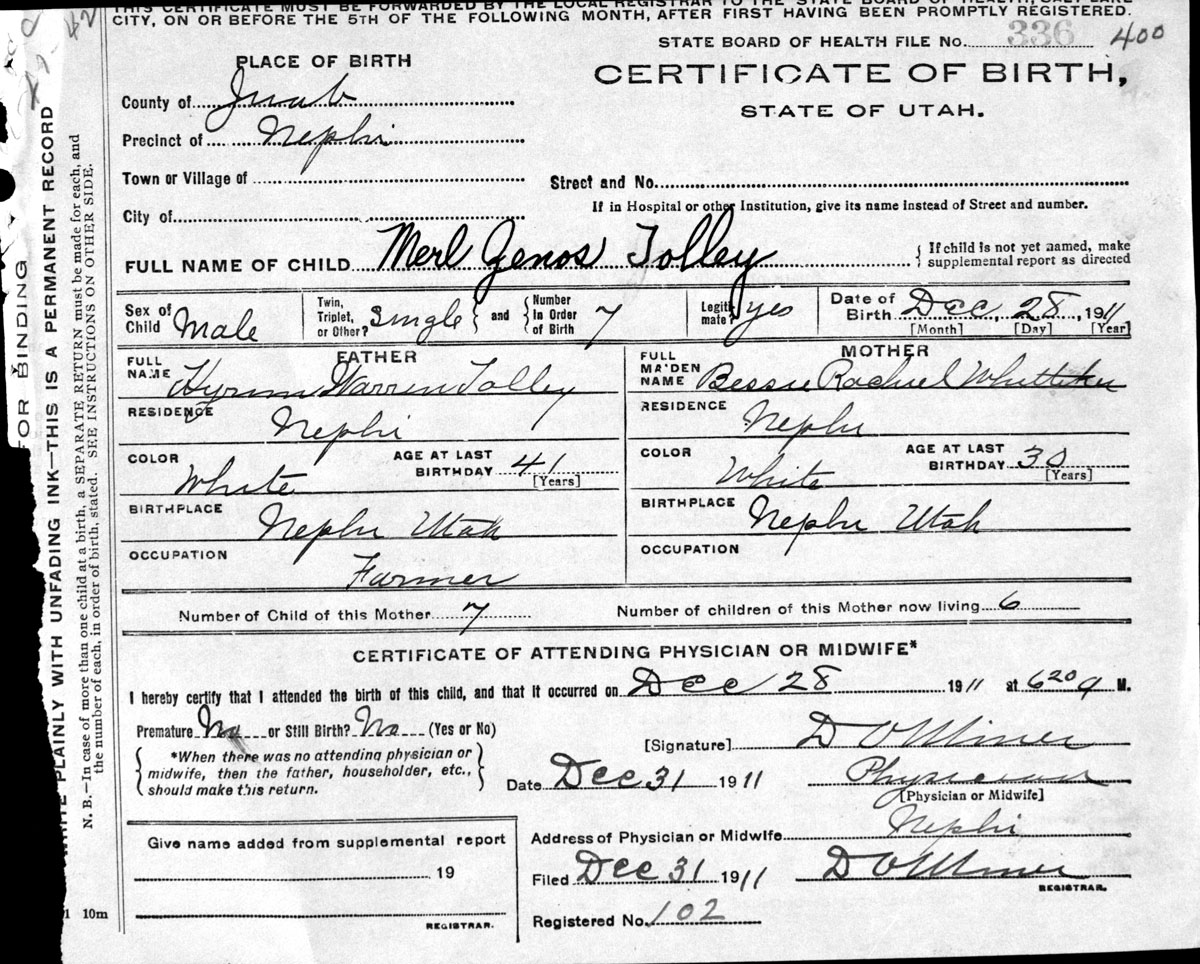 THIS CERTIFICATE MUST BE FORWARDED BY THE LOCAL REGISTRAR TO THE STATE BOARD OF HEALTH, SALT LAKE
CITY, ON OR BEFORE THE 5TH OF THE FOLLOWING MONTH, AFTER FIRST HAVING BEEN PROMPTLY REGISTERED.
STATE BOARD OF HEALTH FILE No. 336 400
PLACE OF BIRTH
CERTIFICATE OF BIRTH,
STATE OF UTAH.
County of Juab
Precinct of Nephi
Town or Village of
Street and No.
City of
If in Hospital or other Institution, give its name instead of Street and number.
FULL NAME OF CHILD Merl Genos Tolley { If child is not yet named, make supplemental report as directed
Sex of Child Male
Twin, Triplet, or Other? Single } and { Number In Order of Birth 7
Legitimate? yes
Date of Birth Dec, 28, 1911
[Month] [Day] [Year]
FATHER
FULL NAME Hyrum Warren Tolley
RESIDENCE Nephi
COLOR White AGE AT LAST BIRTHDAY 41 [Years]
BIRTHPLACE Nephi Utah
OCCUPATION Farmer
MOTHER
FULL MAIDEN NAME Bessie Rachiel Whitteker
RESIDENCE Nephi
COLOR White AGE AT LAST BIRTHDAY 30 [Years]
BIRTHPLACE Nephi Utah
OCCUPATION
Number of Child of this Mother 7 Number of children of this Mother now living 6
CERTIFICATE OF ATTENDING PHYSICIAN OR MIDWIFE*
I hereby certify that I attended the birth of this child, and that it occurred on Dec 28 1911 at 6 20 a M.
Premature No or Still Birth? No (Yes or No)
{ *When there was no attending physician or
midwife, then the father, householder, etc.,
should make this return. }
[Signature] D O Miner
Date Dec 31 1911 Physician
[Physician or Midwife]
Address of Physician or Midwife Nephi
Filed Dec 31 1911 D O Miner
REGISTRAR.
Registered No. 102
Give name added from supplemental report
19
REGISTRAR.
1 10m
FOR BINDING
WRITE PLAINLY WITH UNFADING INK—THIS IS A PERMANENT RECORD
N. B.—In case of more than one child at a birth, a SEPARATE RETURN must be made for each, and
the number of each, in order of birth, stated. SEE INSTRUCTIONS ON OTHER SIDE.